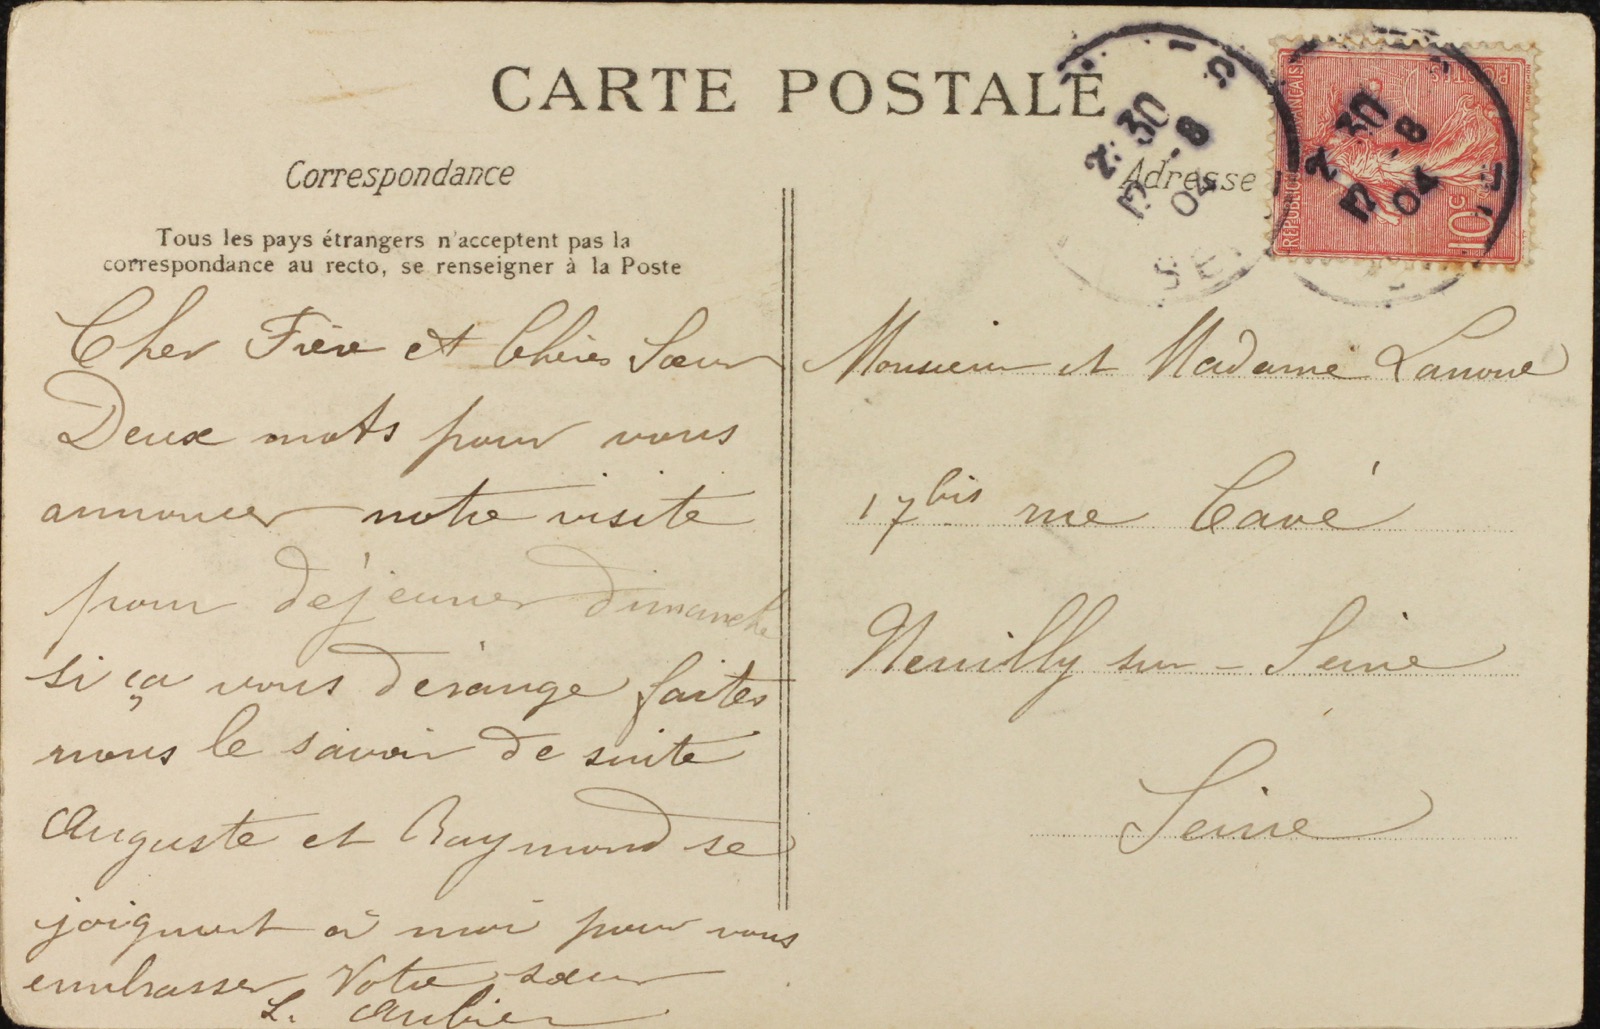 CARTE POSTALE
Correspondance
Tous les pays étrangers n'acceptent pas la
correspondance au recto, se renseigner à la Poste
Cher Frère et Chères Sœur
Deux mots pour vous
annoncer notre visite
pour déjeuner dimanche
si ça vous dérange faites
nous le savoir de suite
Auguste et Raymond se
joignent à moi pour vous
embrasser Votre sœur
L. Aubier
Adresse
2:30
12 -8
04
RÉPUBLIQUE FRANÇAISE
POSTES
10c
2:30
12 -8
04
Monsieur et Madame Lanoue
17 bis rue Cavé
Neuilly sur-Seine
Seine